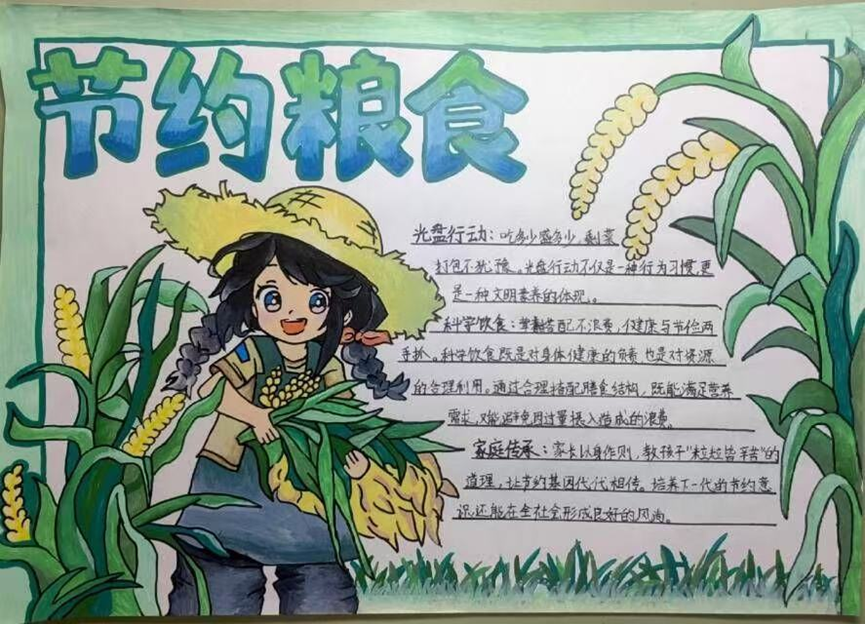 节约粮食
光盘行动：吃多少盛多少，剩菜
打包不犹豫。光盘行动不仅是一种行为习惯，更
是一种文明素养的体现。
科学饮食：营养搭配不浪费，健康与节俭两
手抓。科学饮食既是对身体健康的负责，也是对资源
的合理利用。通过合理搭配膳食结构，既能满足营养
需求，又能避免因过量摄入造成的浪费。
家庭传承：家长以身作则，教孩子“粒粒皆辛苦”的
道理，让节约基因代代相传。培养下一代的节约意
识，还能在全社会形成良好的风尚。